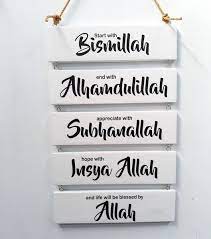 Start with
Bismillah
end with
Alhamdulillah
appreciate with
Subhanallah
hope with
Insya Allah
and life will be blessed by
Allah